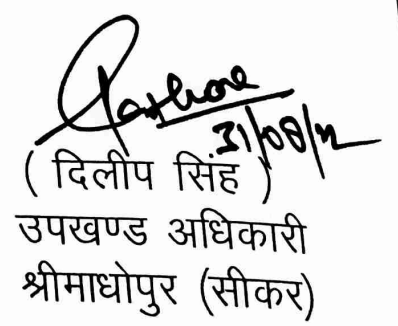 Rathore
31/08/22
( दिलीप सिंह )
उपखण्ड अधिकारी
श्रीमाधोपुर (सीकर)